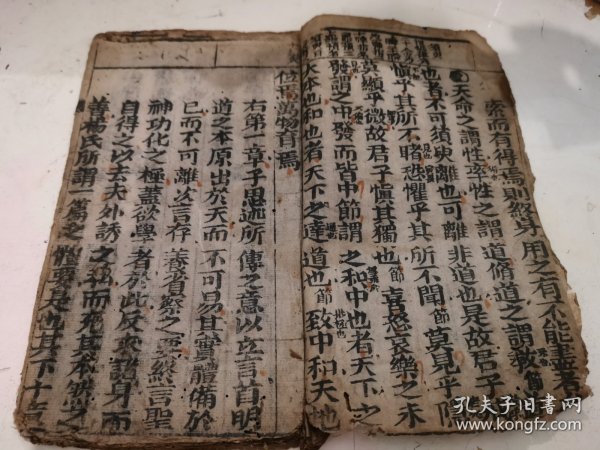 索而有得焉則終身用之有不能盡者
天命之謂性率性之謂道脩道之謂教
也者不可須臾離也可離非道也是故君子
慎乎其所不睹恐懼乎其所不聞節莫見乎隱
莫顯乎微故君子慎其獨也節喜怒哀樂之未
發謂之中發而皆中節謂之和中也者天下之
大本也和也者天下之達道也節致中和天地
位焉萬物育焉
右第一章子思述所傳之意以立言首明
道之本原出於天而不可易其實體備於
已而不可離次言存養省察之要終言聖
神功化之極蓋欲學者於此反求諸身而
自得之以去夫外誘之私而充其本然之
善楊氏所謂一篇之體要是也其下十章
孔夫子旧书网